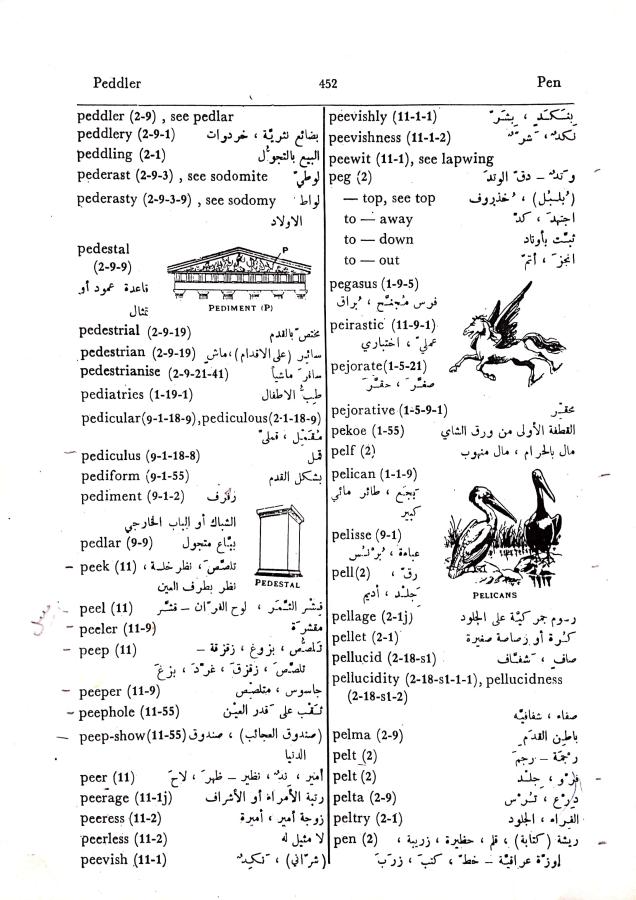 Peddler 452 Pen
peddler (2-9) , see pedlar
peddlery (2-9-1) بضائع نثريّة ، خردوات
peddling (2-1) البيع بالتجوّل
pederast (2-9-3) , see sodomite لوطيّ
pederasty (2-9-3-9) , see sodomy لواط
الاولاد
pedestal
(2-9-9)
قاعدة عمود أو
تمثال
PEDIMENT (P)
P
pedestrial (2-9-19) مختصّ بالقدم
pedestrian (2-9-19) سائر (على الاقدام)، ماش
pedestrianise (2-9-21-41) سافرَ ماشياً
pediatries (1-19-1) طبّ الاطفال
pedicular(9-1-18-9),pediculous(2-1-18-9)
مُقَمَّل ، قمليّ
pediculus (9-1-18-8) قمل
pediform (9-1-55) بشكل القدم
pediment (9-1-2) رفرف
الشباك أو الباب الخارجي
pedlar (9-9) بيّاع متجول
PEDESTAL
peek (11) تلصّص، نظر خلسة ،
نظر بطرف العين
peel (11) قِشر الثمر ، لوح الفرّان – قشّر
peeler (11-9) مقشرة
peep (11) تلصّص ، بزوغ ، زقزقة –
تلصّصَ ، زقزقَ ، غرّدَ ، بزغَ
peeper (11-9) جاسوس ، متلصّص
peephole (11-55) ثقب على قدر العين
peep-show(11-55) (صندوق العجائب) ، صندوق
الدنيا
peer (11) أمير ، ندّ ، نظير – ظهرَ ، لاحَ
peerage (11-1j) رتبة الأمراء أو الأشراف
peeress (11-2) زوجة أمير ، أميرة
peerless (11-2) لا مثيل له
peevish (11-1) (شرّاني) ، نكيد
peevishly (11-1-1) بنكد ، بشرّ
peevishness (11-1-2) نكد ، شرّ
peewit (11-1), see lapwing
peg (2) وتد – دقّ الوتدَ
— top, see top (بُلبُل) ، خذروف
to — away اجتهدَ ، كدّ
to — down ثبّت بأوتاد
to — out انجزَ ، أتمّ
pegasus (1-9-5)
فرس مُجنّح ، بُراق
peirastic (11-9-1)
عمليّ ، اختباري
pejorate(1-5-21)
صغّرَ ، حقّرَ
pejorative (1-5-9-1) محقّر
pekoe (1-55) القطفة الأولى من ورق الشاي
pelf (2) مال بالحرام ، مال منهوب
pelican (1-1-9)
بجع ، طائر مائي
كبير
pelisse (9-1)
عباءة ، بُرنُس
pell(2) رقّ ،
جلد ، أديم
PELICANS
pellage (2-1j) رسوم جمركيّة على الجلود
pellet (2-1) كُرة أو رصاصة صغيرة
pellucid (2-18-s1) صافٍ ، شفّاف
pellucidity (2-18-s1-1-1), pellucidness
(2-18-s1-2)
صفاء ، شفافيّه
pelma (2-9) باطن القدم
pelt (2) رجمة – رجمَ
pelt (2) فرو ، جلد
pelta (2-9) درع ، تُرس
peltry (2-1) الفراء ، الجلود
pen (2) ريشة (كتابة) ، قلم ، حظيرة ، زريبة ،
اوزة عراقية – خطّ ، كتبَ ، زربَ